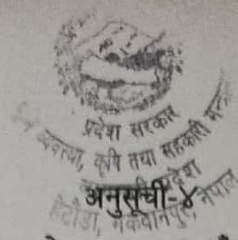 प्रदेश सरकार
व्यवस्था, कृषि तथा सहकारी
प्रदेश
अनुसूची-४
हेटौंडा, मकवानपुर, नेपाल